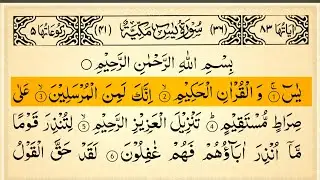 اٰيَاتُهَا ٨٣ (٣٦) سُوْرَةُ يٰسٓ مَكِّيَّةٌ (٤١) رُكُوْعَاتُهَا ٥
بِسْمِ اللهِ الرَّحْمٰنِ الرَّحِيْمِ
يٰسٓ ۝١ وَ الْقُرْاٰنِ الْحَكِيْمِ ۝٢ اِنَّكَ لَمِنَ الْمُرْسَلِيْنَ ۝٣ عَلٰى
صِرَاطٍ مُّسْتَقِيْمٍ ۝٤ تَنْزِيْلَ الْعَزِيْزِ الرَّحِيْمِ ۝٥ لِتُنْذِرَ قَوْمًا
مَّاۤ اُنْذِرَ اٰبَآؤُهُمْ فَهُمْ غٰفِلُوْنَ ۝٦ لَقَدْ حَقَّ الْقَوْلُ